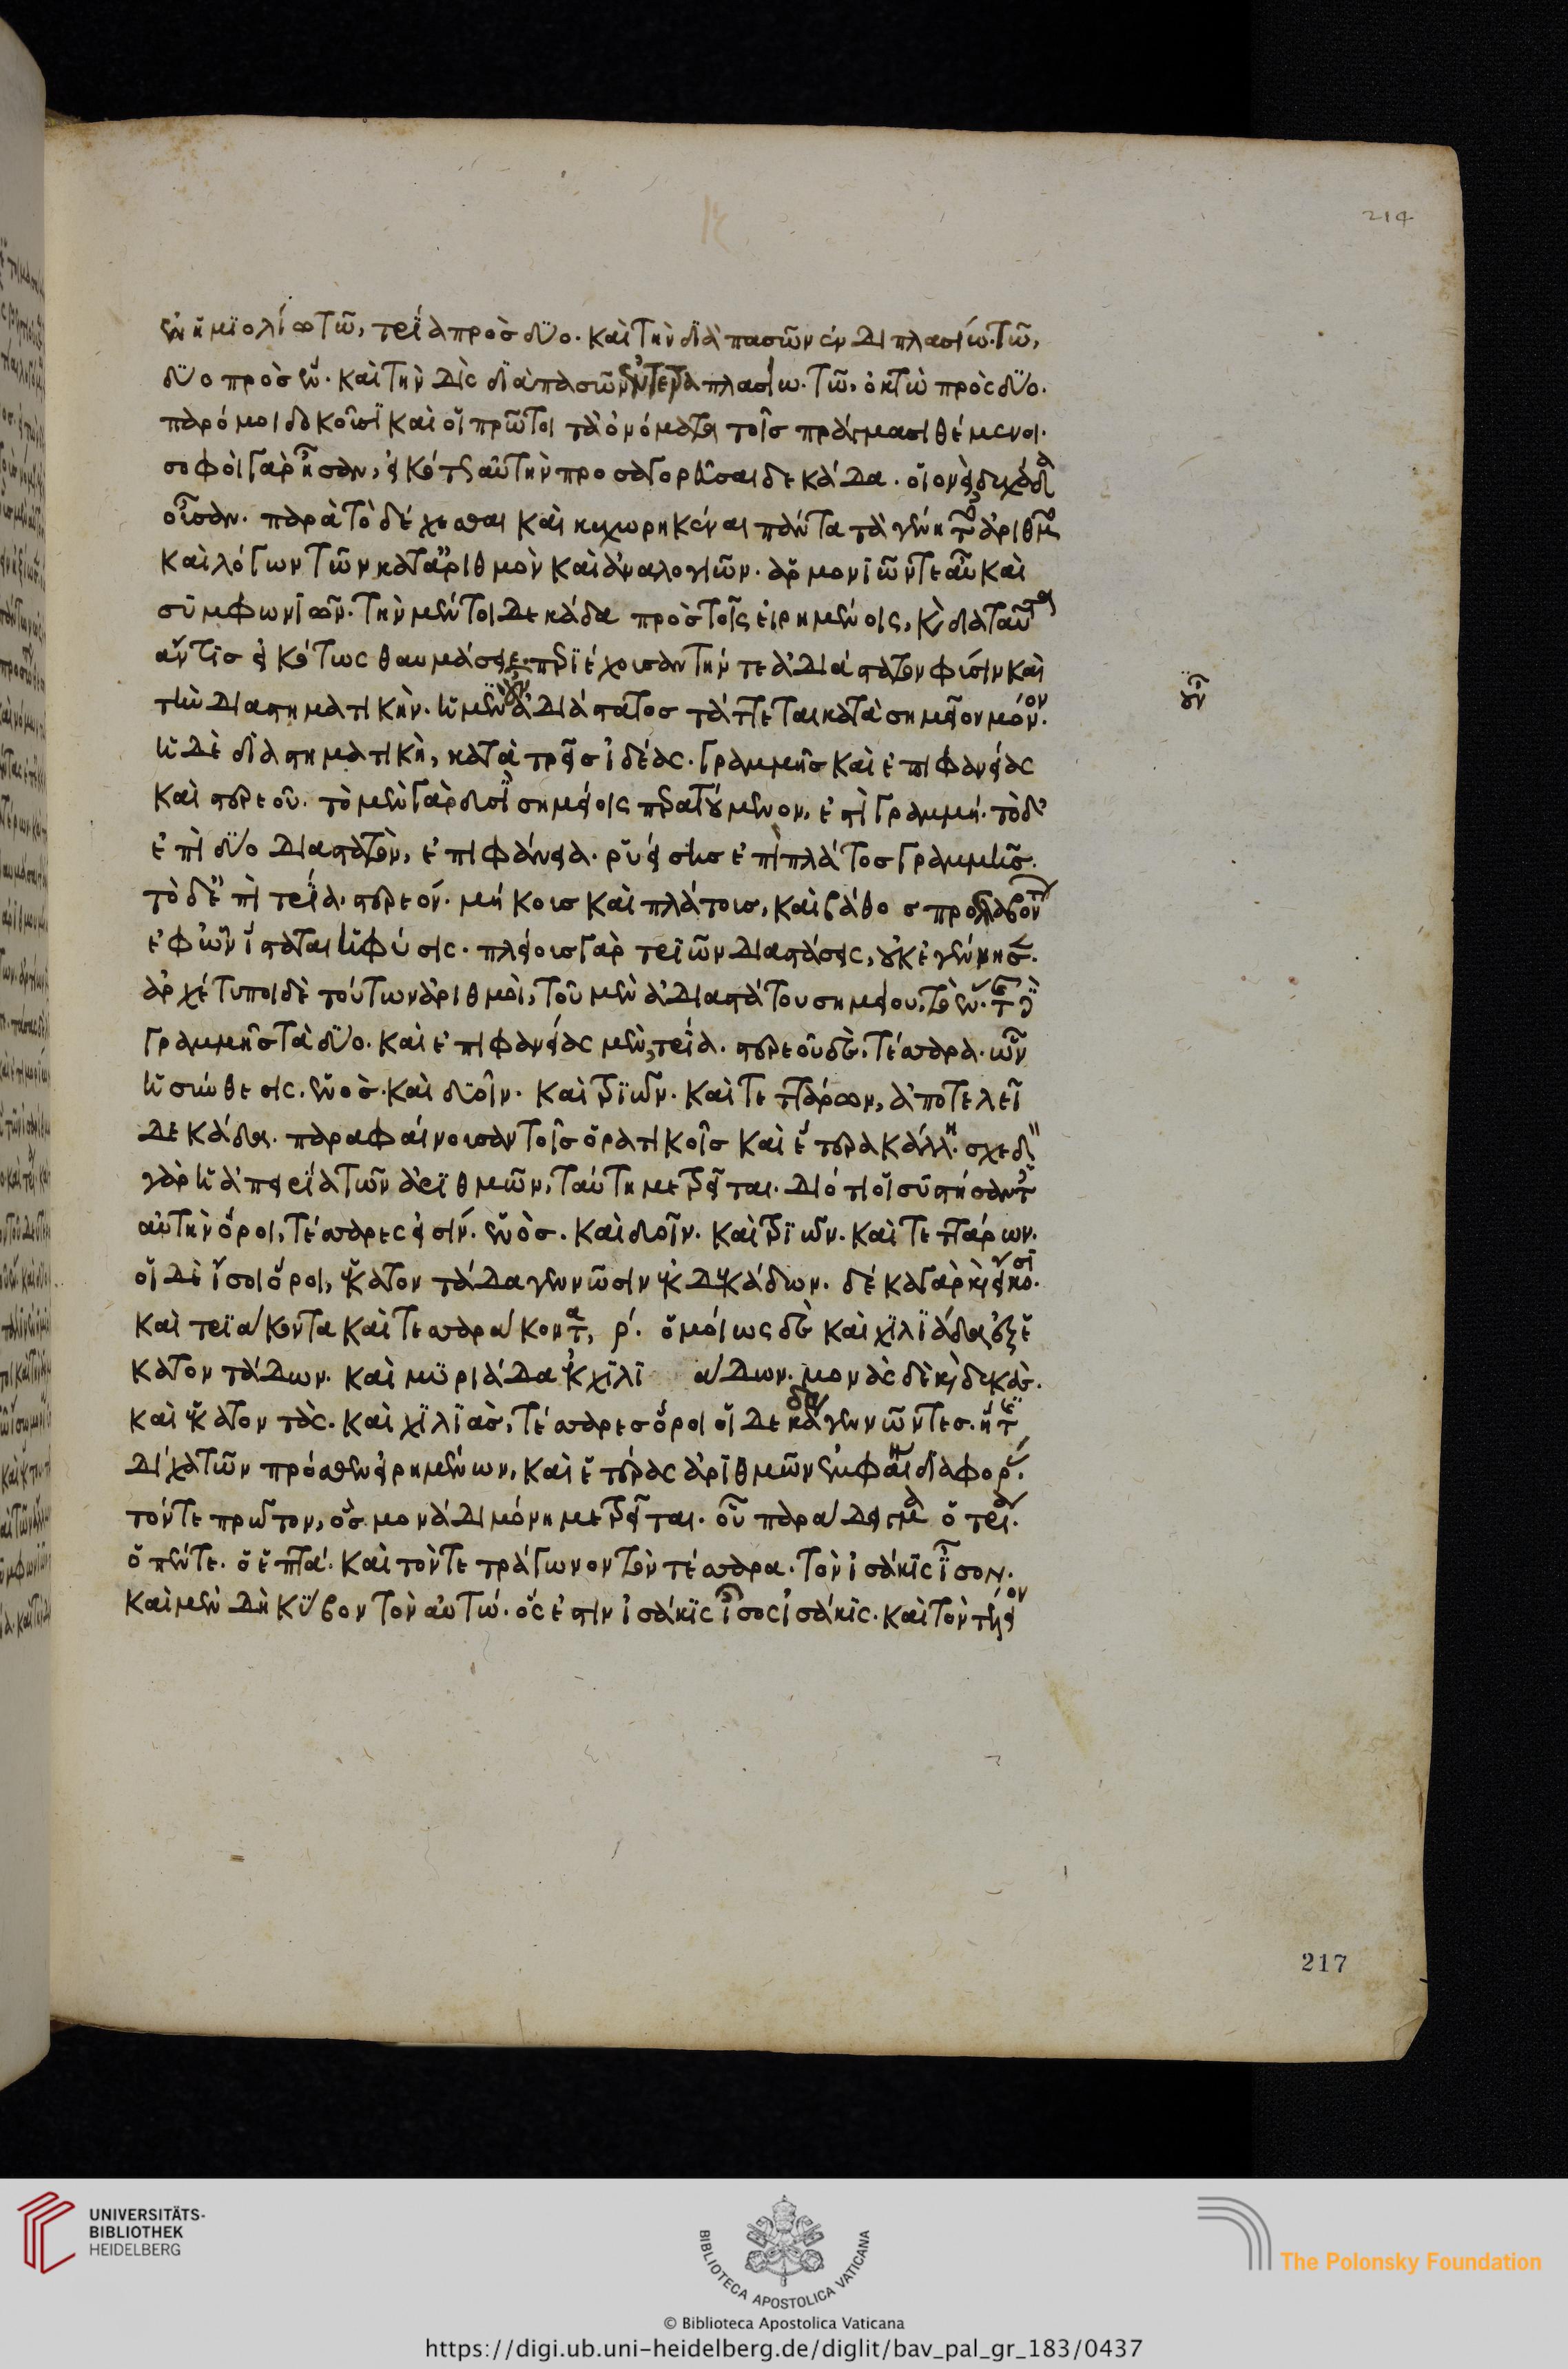 ἐν ἡμϊολίω τῶ, τρία πρὸς δύο. καὶ τὴν διὰ πασῶν ἐν διπλασίω. τῶ,
δύο πρὸς ἕν. καὶ τὴν δὶς διὰ πασῶν ἐν τετραπλασίω. τῶ, ὀκτὼ πρὸς δύο.
παρό μοι δοκοῦσι καὶ οἱ πρῶτοι τὰ ὀνόματα τοῖς πράγμασι θέμενοι.
σοφοὶ γὰρ ἦσαν, εἰκότως αὐτὴν προσαγορεῦσαι δεκάδα. οἱονεὶ δεχάδα
οὖσαν. παρὰ τὸ δέχεσθαι καὶ κεχωρηκέναι πάντα τὰ γένη τοῦ ἀριθμοῦ
καὶ λόγων τῶν κατ' ἀριθμὸν καὶ ἀναλογιῶν. ἁρμονιῶν τε αὖ καὶ
συμφωνιῶν. τὴν μέντοι δεκάδα πρὸς τοῖς εἰρημένοις, καὶ διὰ ταῦτα
ἄν τις εἰκότως θαυμάσειε. περιέχουσαν τήν τε ἀδιάστατον φύσιν καὶ
τὴν διαστηματικὴν. ἡ μὲν οὖν ἀδιάστατος τάττεται κατὰ σημεῖον μόνον.
οὖν
ἡ δὲ διαστηματικὴ, κατὰ τρεῖς ἰδέας. γραμμῆς καὶ ἐπιφανείας
καὶ στερεοῦ. τὸ μὲν γὰρ δυσὶ σημείοις περατούμενον, ἐστὶ γραμμή. τὸ δ'
ἐπὶ δύο διαστατὸν, ἐπιφάνεια. ῥυείσης ἐπὶ πλάτος γραμμῆς.
τὸ δ' ἐπὶ τρία. στερεόν. μήκους καὶ πλάτους, καὶ βάθος προσλαβόντων
ἐφ' ὧν ἵσταται ἡ φύσις. πλείους γὰρ τριῶν διαστάσεις, οὐκ ἐγέννησεν.
ἀρχέτυποι δὲ τούτων ἀριθμοὶ, τοῦ μὲν ἀδιαστάτου σημείου, τὸ ἕν. τῆς δὲ
γραμμῆς τὰ δύο. καὶ ἐπιφανείας μὲν, τρία. στερεοῦ δὲ, τέσσαρα. ὧν
ἡ σύνθεσις. ἑνὸς. καὶ δυοῖν. καὶ τριῶν. καὶ τεττάρων, ἀποτελεῖ
δεκάδα. παραφαίνουσαν τοῖς ὁρατικοῖς καὶ ἕτερα κάλλη. σχεδὸν
γὰρ ἡ ἀπειρία τῶν ἀριθμῶν, ταύτη μετρεῖται. διότι οἱ συστήσαντες
αὐτὴν ὅροι, τέσσαρες εἰσίν. ἑνὸς. καὶ δυοῖν. καὶ τριῶν. καὶ τεττάρων.
οἱ δὲ ἴσοι ὅροι, ἑκατοντάδα γεννῶσιν ἐκ δεκάδων. δέκα γὰρ καὶ εἴκοσι.
καὶ τριάκοντα καὶ τεσσαράκοντα, ρ΄. ὁμοίως δὲ καὶ χιλιάδας ἐξ ἑ
κατοντάδων. καὶ μυριάδα ἐκ χιλιάδων. μονὰς δὲ καὶ δεκὰς.
καὶ ἑκατοντὰς. καὶ χιλιὰς, τέσσαρες ὅροι οἱ δεκάδα γεννῶντες. ἥτις
δίχα τῶν πρόσθεν εἰρημένων, καὶ ἑτέρας ἀριθμῶν ἐμφαίνει διαφορὰς.
τόν τε πρῶτον, ὃς μονάδι μόνη μετρεῖται. οὗ παράδειγμα ὁ τρία.
ὁ πέντε. ὁ ἑπτά. καὶ τόν τετράγωνον τὸν τέσσαρα. τὸν ἰσάκις ἴσον.
καὶ μὲν δὴ κύβον τὸν ὀκτώ. ὅς ἐστιν ἰσάκις ἴσος ἰσάκις. καὶ τὸν τέλειον
214
217
UNIVERSITÄTS-
BIBLIOTHEK
HEIDELBERG
BIBLIOTECA APOSTOLICA VATICANA
The Polonsky Foundation
© Biblioteca Apostolica Vaticana
https://digi.ub.uni-heidelberg.de/diglit/bav_pal_gr_183/0437